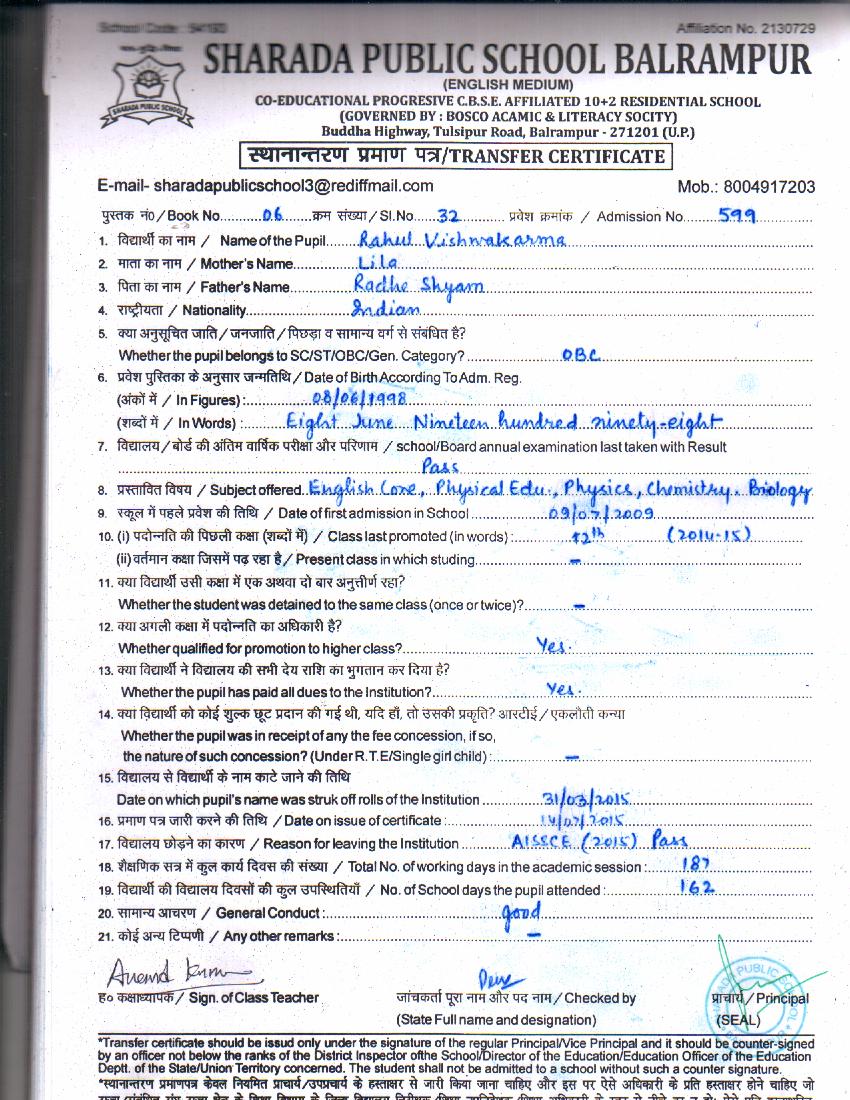 School Code : 54190
Affiliation No. 2130729
SHARADA PUBLIC SCHOOL
SHARADA PUBLIC SCHOOL BALRAMPUR
(ENGLISH MEDIUM)
CO-EDUCATIONAL PROGRESIVE C.B.S.E. AFFILIATED 10+2 RESIDENTIAL SCHOOL
(GOVERNED BY : BOSCO ACAMIC & LITERACY SOCITY)
Buddha Highway, Tulsipur Road, Balrampur - 271201 (U.P.)
स्थानान्तरण प्रमाण पत्र/TRANSFER CERTIFICATE
E-mail- sharadapublicschool3@rediffmail.com Mob.: 8004917203
पुस्तक नं०/Book No. 06 क्रम संख्या/Sl.No. 32 प्रवेश क्रमांक / Admission No. 599
1. विद्यार्थी का नाम / Name of the Pupil Rahul Vishwakarma
2. माता का नाम / Mother's Name Lila
3. पिता का नाम / Father's Name Radhe Shyam
4. राष्ट्रीयता / Nationality Indian
5. क्या अनुसूचित जाति/जनजाति/पिछड़ा व सामान्य वर्ग से संबंधित है?
Whether the pupil belongs to SC/ST/OBC/Gen. Category? OBC
6. प्रवेश पुस्तिका के अनुसार जन्मतिथि/Date of Birth According To Adm. Reg.
(अंकों में / In Figures) : 08/06/1998
(शब्दों में / In Words) : Eight June Nineteen hundred ninety-eight
7. विद्यालय/बोर्ड की अंतिम वार्षिक परीक्षा और परिणाम / school/Board annual examination last taken with Result
Pass
8. प्रस्तावित विषय / Subject offered. English Core, Physical Edu., Physics, Chemistry. Biology
9. स्कूल में पहले प्रवेश की तिथि / Date of first admission in School 09/07/2009
10. (i) पदोन्नति की पिछली कक्षा (शब्दों में) / Class last promoted (in words) : 12th (2014-15)
(ii) वर्तमान कक्षा जिसमें पढ़ रहा है/ Present class in which studing -
11. क्या विद्यार्थी उसी कक्षा में एक अथवा दो बार अनुत्तीर्ण रहा?
Whether the student was detained to the same class (once or twice)? -
12. क्या अगली कक्षा में पदोन्नति का अधिकारी है?
Whether qualified for promotion to higher class? Yes.
13. क्या विद्यार्थी ने विद्यालय की सभी देय राशि का भुगतान कर दिया है?
Whether the pupil has paid all dues to the Institution? Yes.
14. क्या विद्यार्थी को कोई शुल्क छूट प्रदान की गई थी, यदि हाँ, तो उसकी प्रकृति? आरटीई/एकलौती कन्या
Whether the pupil was in receipt of any the fee concession, if so,
the nature of such concession? (Under R.T.E/Single girl child) : -
15. विद्यालय से विद्यार्थी के नाम काटे जाने की तिथि
Date on which pupil's name was struk off rolls of the Institution 31/03/2015
16. प्रमाण पत्र जारी करने की तिथि / Date on issue of certificate 14/07/2015
17. विद्यालय छोड़ने का कारण / Reason for leaving the Institution AISSCE (2015) Pass
18. शैक्षणिक सत्र में कुल कार्य दिवस की संख्या / Total No. of working days in the academic session : 187
19. विद्यार्थी की विद्यालय दिवसों की कुल उपस्थितियाँ / No. of School days the pupil attended : 162
20. सामान्य आचरण / General Conduct : good
21. कोई अन्य टिप्पणी / Any other remarks : -
Anand Kumar
ह० कक्षाध्यापक/ Sign. of Class Teacher जांचकर्ता पूरा नाम और पद नाम/Checked by प्राचार्य/Principal
(State Full name and designation) (SEAL)
*Transfer certificate should be issud only under the signature of the regular Principal/Vice Principal and it should be counter-signed
by an officer not below the ranks of the District Inspector ofthe School/Director of the Education/Education Officer of the Education
Deptt. of the State/Union Territory concerned. The student shall not be admitted to a school without such a counter signature.
*स्थानान्तरण प्रमाणपत्र केवल नियमित प्राचार्य/उपप्राचार्य के हस्ताक्षर से जारी किया जाना चाहिए और इस पर ऐसे अधिकारी के प्रति हस्ताक्षर होने चाहिए जो